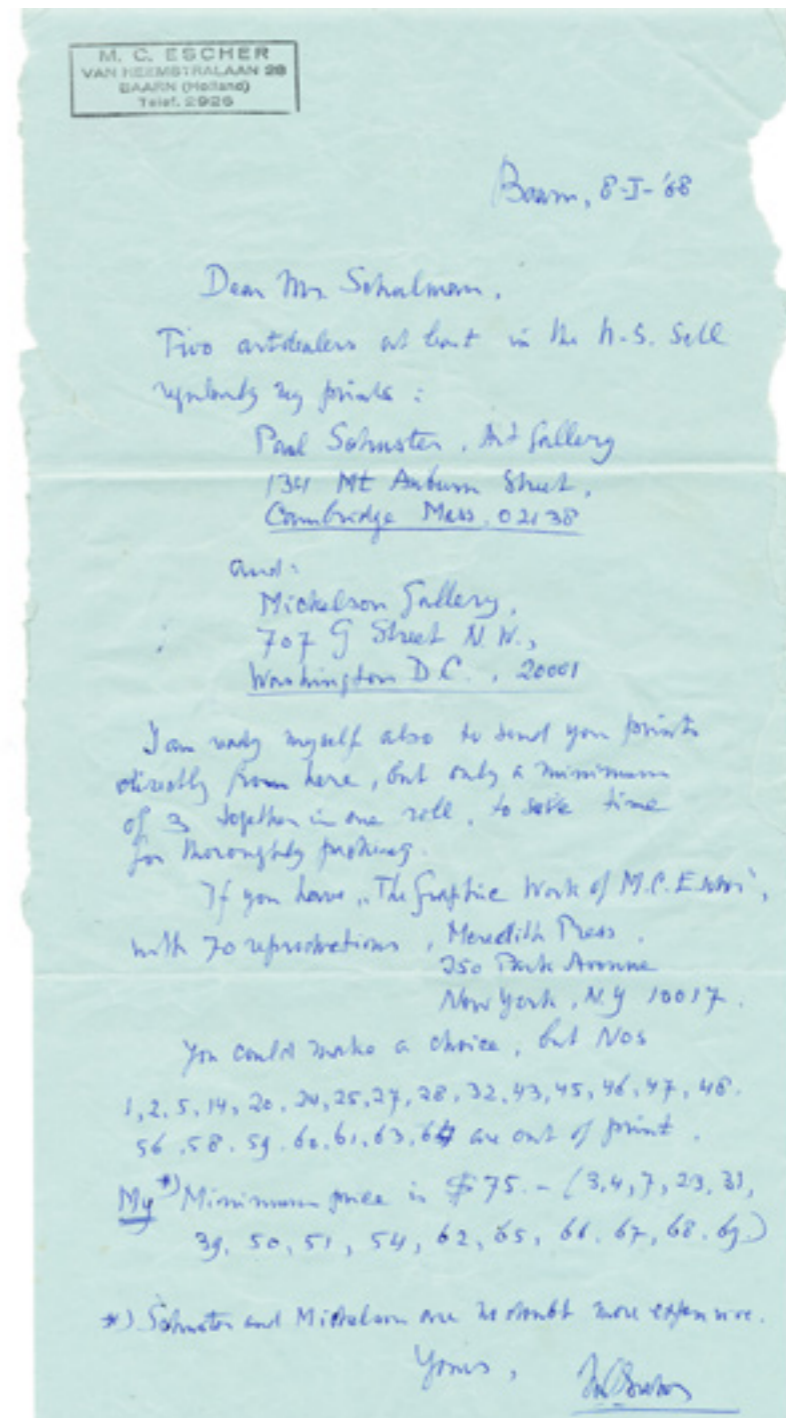 M. C. ESCHER
VAN HEEMSTRALAAN 28
BAARN (Holland)
Telef. 2926
Baarn, 8-I-'68
Dear Mr. Schulmann,
Two artdealers at least in the U.S. sell
regularly my prints :
Paul Schuster, Art Gallery
134 Mt Auburn Street,
Cambridge Mass. 02138
and:
Mickelson Gallery,
707 G Street N.W.,
Washington D.C., 20001
I am ready myself also to send you prints
directly from here, but only a minimum
of 3 together in one roll, to save time
for thoroughly packing.
If you have „The Graphic Work of M.C. Escher",
with 70 reproductions, Meredith Press.
250 Park Avenue
New York, N.Y 10017.
You could make a choice, but Nos
1, 2, 5, 14, 20, 24, 25, 27, 28, 32, 43, 45, 46, 47, 48.
56, 58. 59. 60. 61, 63, 64 are out of print.
My *) Minimum price is $75.- (3, 4, 7, 23, 31,
39, 50, 51, 54, 62, 65, 66. 67, 68. 69.)
*) Schuster and Mickelson are no doubt more expensive.
Yours,